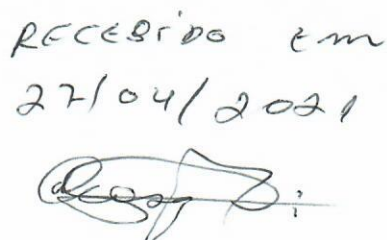 RECEBIDO Em
27/04/2021